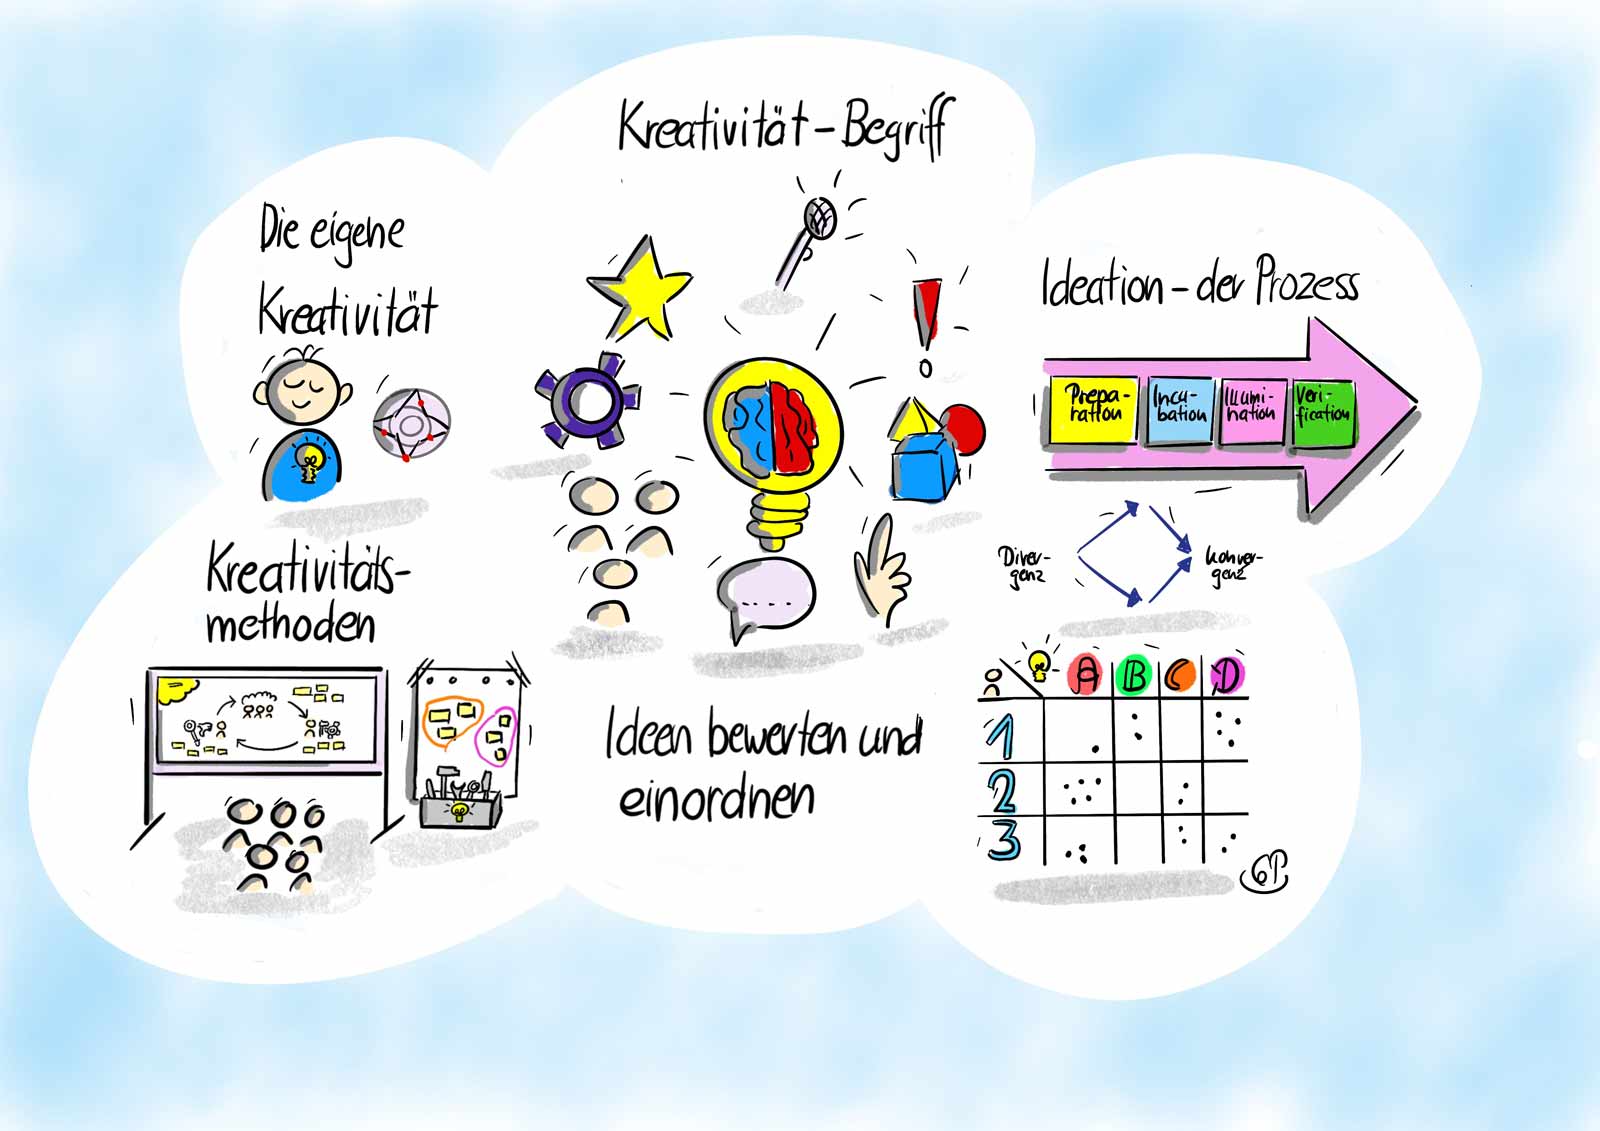 Kreativität - Begriff
Die eigene
Kreativität
Ideation - der Prozess
Prepa-
ration
Incu-
bation
Illumi-
nation
Veri-
fication
Diver-
genz
Konver-
genz
Kreativitäts-
methoden
Ideen bewerten und
einordnen
A B C D
1
2
3